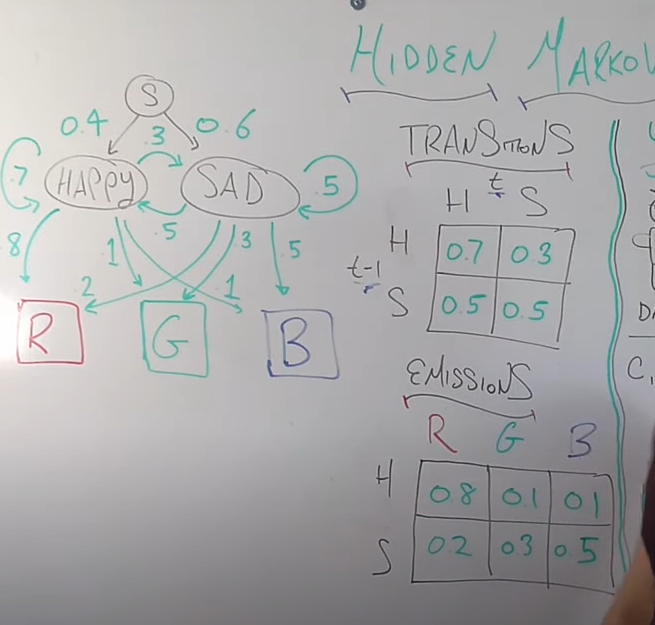 HIDDEN MARKOV
S
0.4 .3 0.6
.7 HAPPY SAD .5
.5
.8 .1 .2 .3 .1 .5
R G B
TRANSITIONS
t
H S
t-1
H 0.7 0.3
S 0.5 0.5
EMISSIONS
R G B
H 0.8 0.1 0.1
S 0.2 0.3 0.5
C.